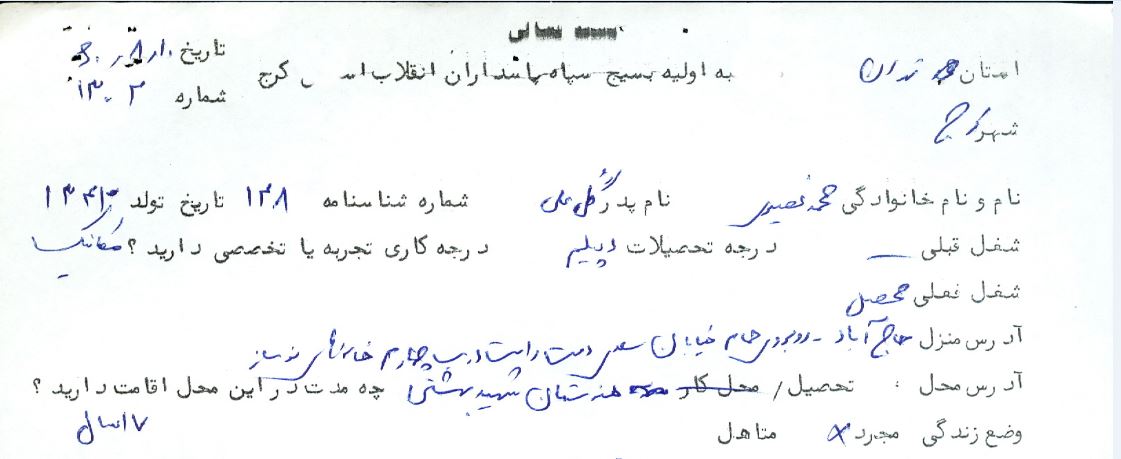 بسمه تعالی
استان تهران به اولیه بسیج سپاه پاسداران انقلاب اس کرج تاریخ
شهر کرج شماره ۱۳۰۲
نام و نام خانوادگی محمد نصیری نام پدر گل علی شماره شناسنامه ۱۲۸ تاریخ تولد ۱۳۴۳
شغل قبلی ـــ درجه تحصیلات دیپلم درجه کاری تجربه یا تخصصی دارید ؟ مکانیک
شغل فعلی محصل
آدرس منزل حاج آباد - روبروی حمام خیابان دست راست درب چهارم خانه‌های نوساز
آدرس محل : تحصیل / محل کار هنرستان شهید بهشتی چه مدت در این محل اقامت دارید ؟
وضع زندگی مجرد × متاهل ۱۷ سال